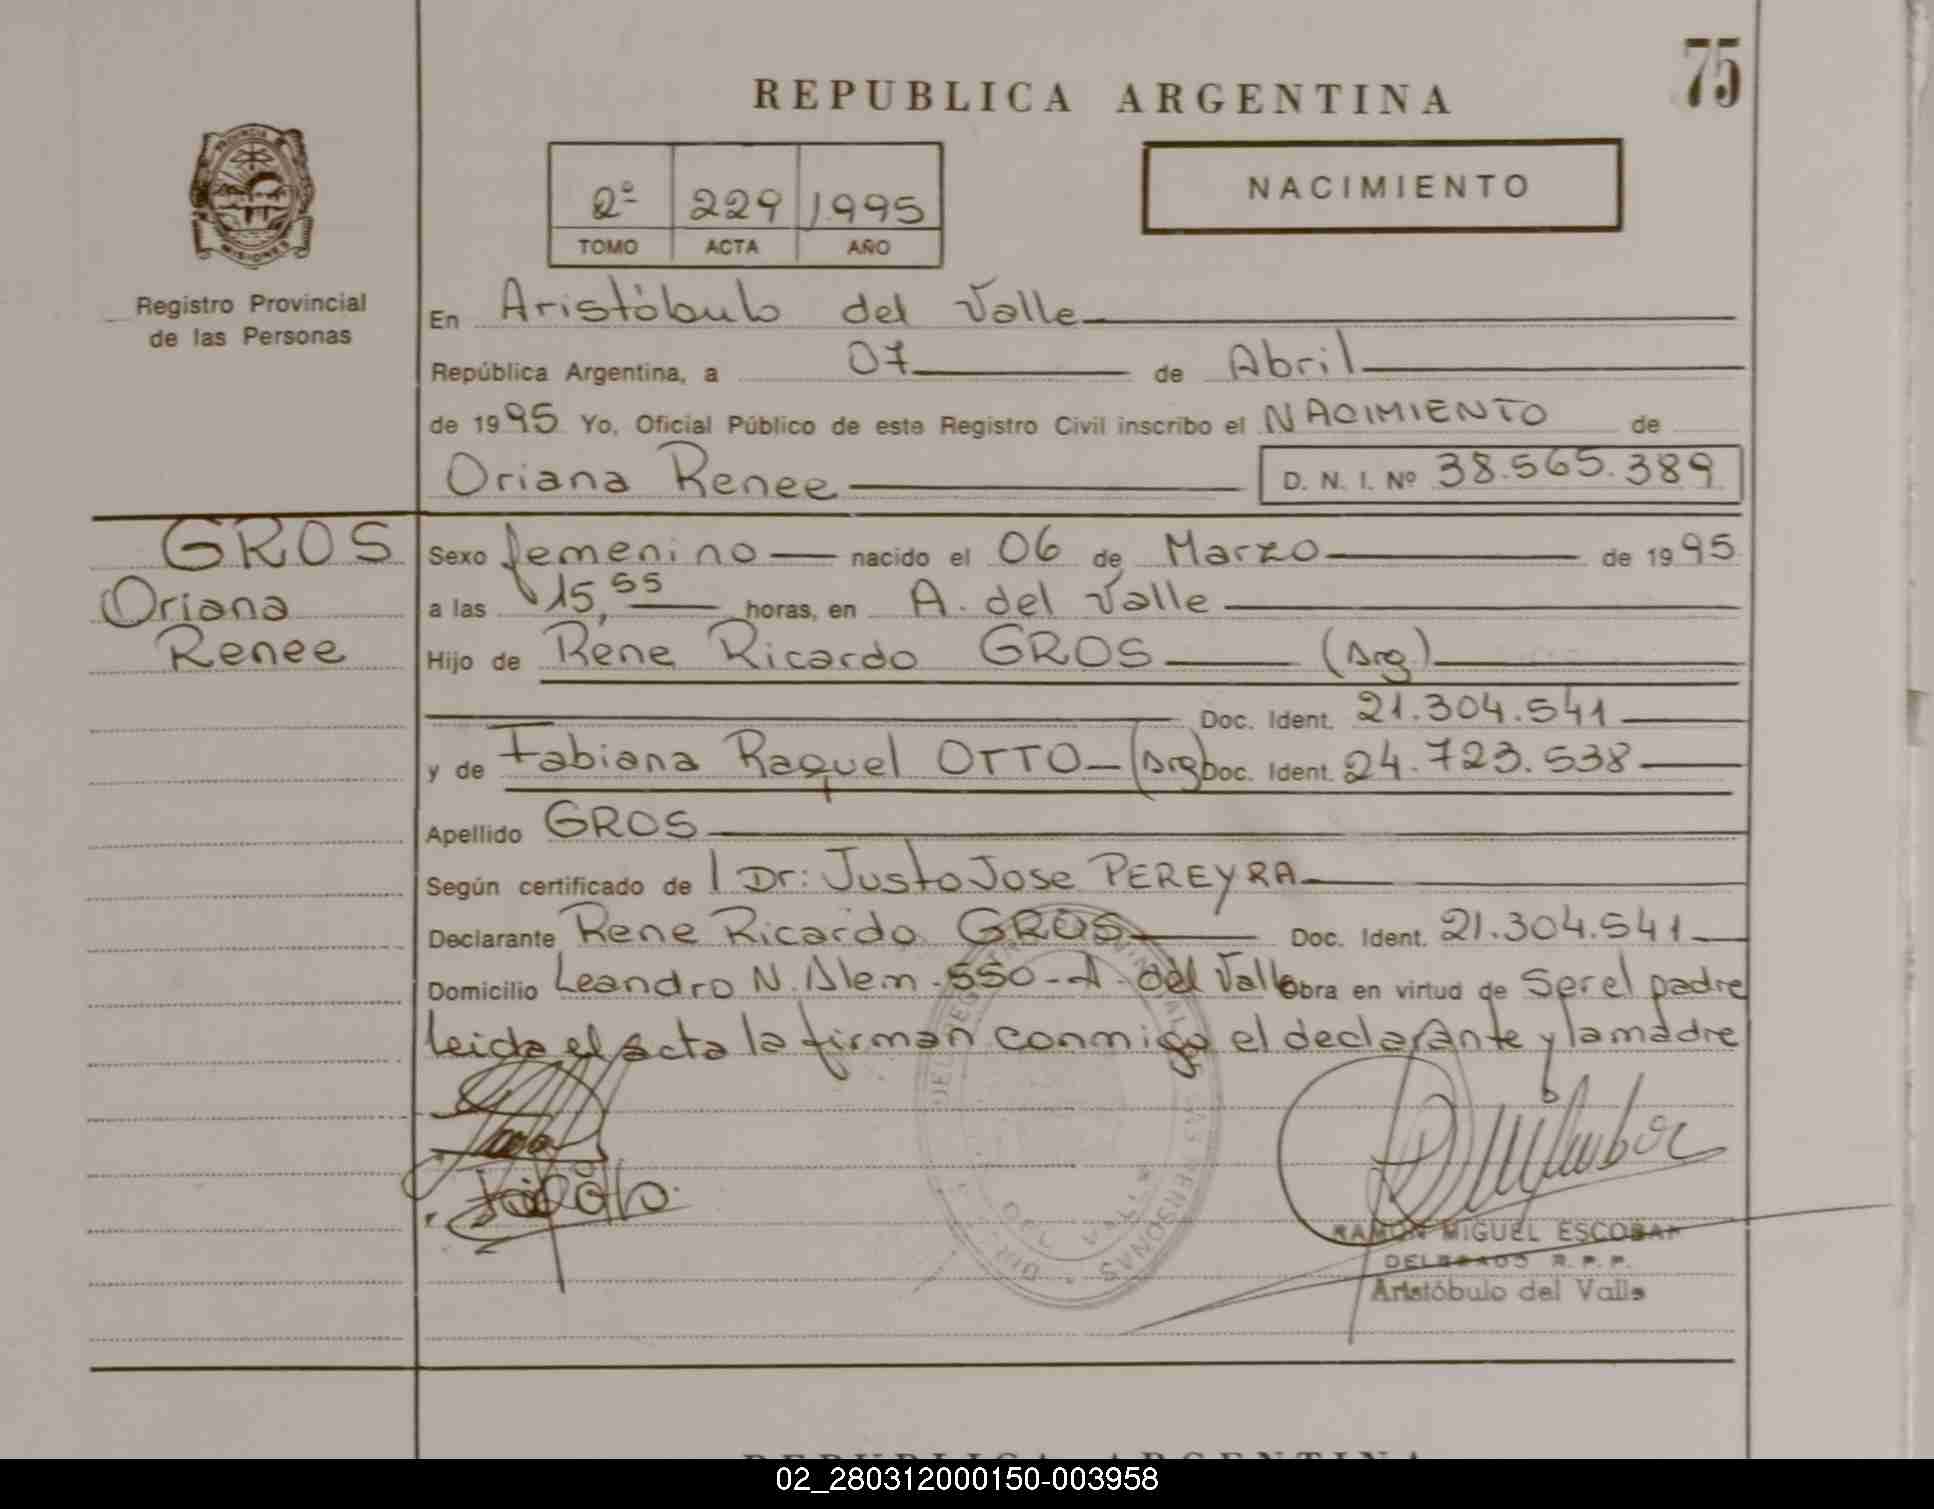 75
REPUBLICA ARGENTINA
NACIMIENTO
2º 229 1995
TOMO ACTA AÑO
PROVINCIA
MISIONES
Registro Provincial
de las Personas
En Aristóbulo del Valle
República Argentina, a 07 de Abril
de 1995 Yo, Oficial Público de este Registro Civil inscribo el NACIMIENTO de
Oriana Renee D. N. I. Nº 38.565.389
GROS
Oriana
Renee
Sexo femenino nacido el 06 de Marzo de 1995
a las 15,55 horas, en A. del Valle
Hijo de Rene Ricardo GROS (Arg)
Doc. Ident. 21.304.541
y de Fabiana Raquel OTTO (Arg) Doc. Ident. 24.723.538
Apellido GROS
Según certificado de l Dr: Justo Jose PEREYRA
Declarante Rene Ricardo GROS Doc. Ident. 21.304.541
Domicilio Leandro N. Alem. 550 - A. del Valle Obra en virtud de ser el padre
leida el acta la firman conmigo el declarante y la madre
DEL VALLE
RAMON MIGUEL ESCOBAR
DELEGADO R. P. P.
Aristóbulo del Valle
REPUBLICA ARGENTINA
02_280312000150-003958